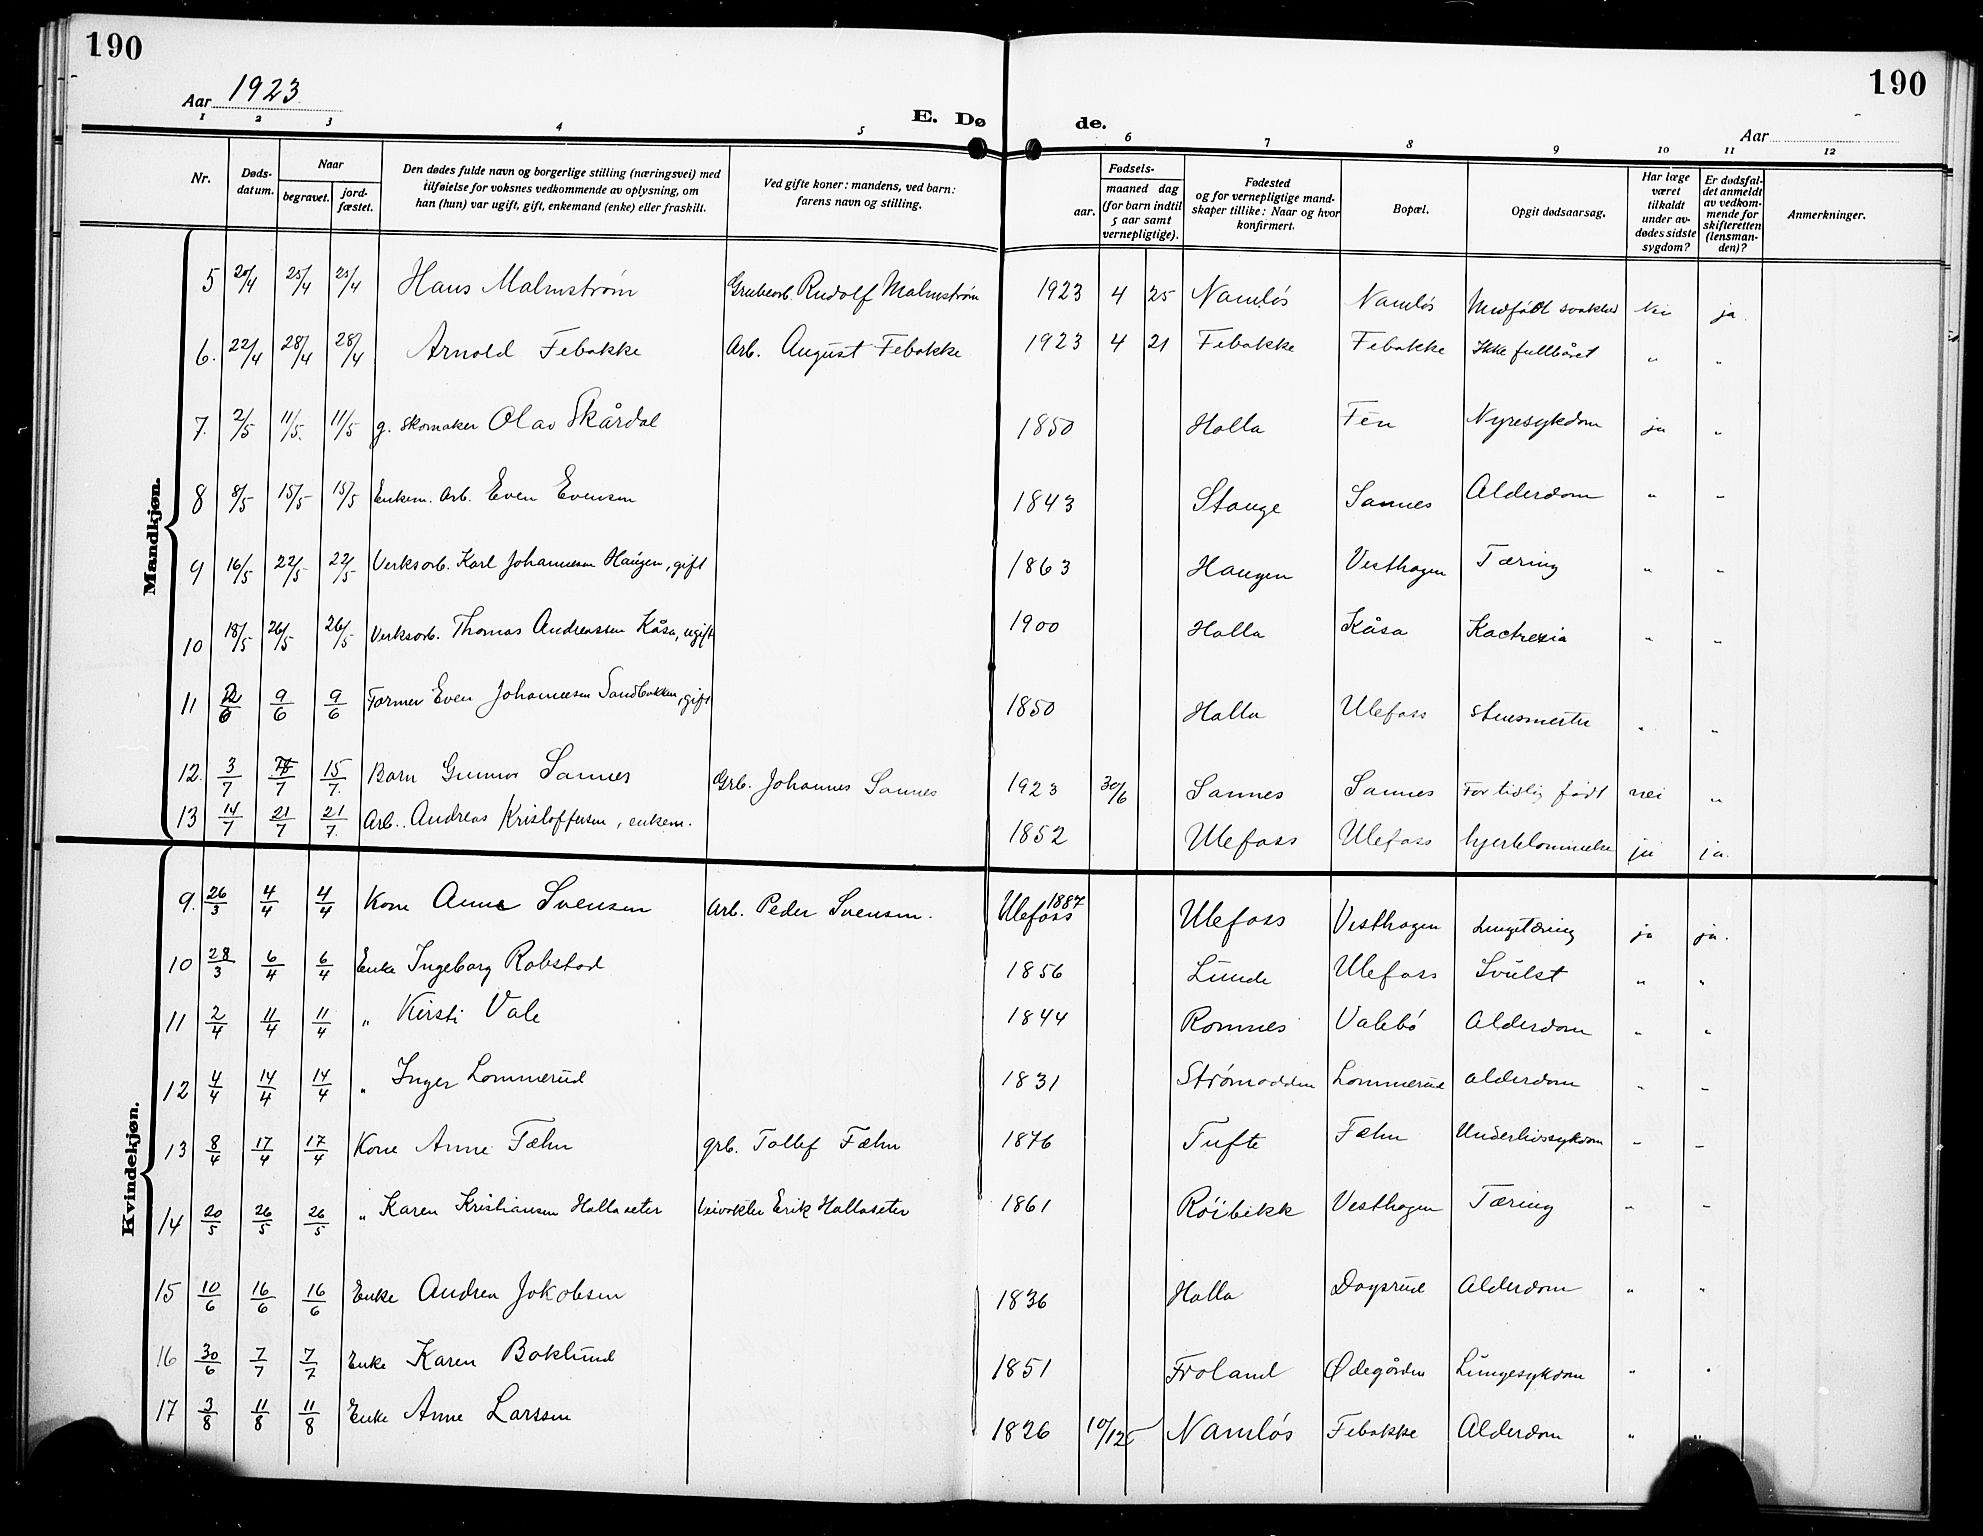 190
190
Aar 1923
E. Dø de.
Aar
1 2 3 4 5 6 7 8 9 10 11 12
Nr.
Døds-
datum.
Naar
begravet.
jord-
fæstet.
Den dødes fulde navn og borgerlige stilling (næringsvei) med
tilføielse for voksnes vedkommende av oplysning, om
han (hun) var ugift, gift, enkemand (enke) eller fraskilt.
Ved gifte koner: mandens, ved barn:
farens navn og stilling.
Fødsels-
aar.
maaned dag
(for barn indtil
5 aar samt
vernepligtige).
Fødested
og for vernepligtige mand-
skaper tillike: Naar og hvor
konfirmert.
Bopæl.
Opgit dødsaarsag.
Har læge
været
tilkaldt
under av-
dødes sidste
sygdom?
Er dødsfal-
det anmeldt
av vedkom-
mende for
skifteretten
(lensman-
den)?
Anmerkninger.
Mandkjøn.
5 20/4 25/4 25/4 Hans Malmström Grubearb. Rudolf Malmström 1923 4 25 Namløs Namløs Medfødt svakhed Nei ja.
6. 22/4 28/4 28/4 Arnold Febakke Arb. August Febakke 1923 4 21 Febakke Febakke Ikke fullbåret " "
7. 2/5 11/5. 11/5 g. Skomaker Olav Skårdal 1850 Holla Fen Nyresykdom ja "
8 8/5 15/5 15/5 Enkem. Arb. Even Evensen 1843 Stange Sannes Alderdom " "
9 16/5 22/5 22/5 Verksarb. Karl Johannesen Haugen, gift 1863 Haugen Vesthagen Tæring " "
10 18/5 26/5 26/5 Verksarb. Thomas Andreassen Kåsa, ugift 1900 Holla Kåsa Kactrexia " "
11 2/6 9/6 9/6 Former Even Johannesen Sandbakken, gift 1850 Holla Ulefoss Stensmerter " "
12. 3/7 15/7 15/7. Barn Gunnar Sannes Grb. Johannes Sannes 1923 30/6 Sannes Sannes For tidlig født nei "
13 14/7 21/7 21/7. Arb. Andreas Kristoffersen, enkem. 1852 Ulefoss Ulefoss hjertelammelse ja ja.
Kvindekjøn.
9. 26/3 4/4 4/4 Kone Anne Svensen Arb. Peder Svensen. Ulefoss 1887 Ulefoss Vesthagen Lungetæring ja ja.
10 28/3 6/4 6/4 Enke Ingeborg Rabstad 1856 Lunde Ulefoss Svulst " "
11 2/4 11/4 11/4 " Kirsti Vale 1844 Romnes Valebö Alderdom " "
12 4/4 14/4 14/4 " Inger Lommerud 1831 Strømodden Lommerud alderdom " "
13 8/4 17/4 17/4 Kone Anne Fæhn grb. Tollef Fæhn 1876 Tufte Fæhn Underlivssykdom " "
14 20/5 26/5 26/5 " Karen Kristiansen Hollaseter Veivokter Erik Hollaseter 1861 Röibekk Vesthagen Tæring " "
15 10/6 16/6 16/6 Enke Andrea Jakobsen 1836 Holla Dagsrud Alderdom " "
16 30/6 7/7 7/7 Enke Karen Boklund 1851 Froland Ødegården Lungesykdom " "
17 3/8 11/8 11/8 Enke Anne Larssen 1826 10/12 Namløs Febakke Alderdom " "